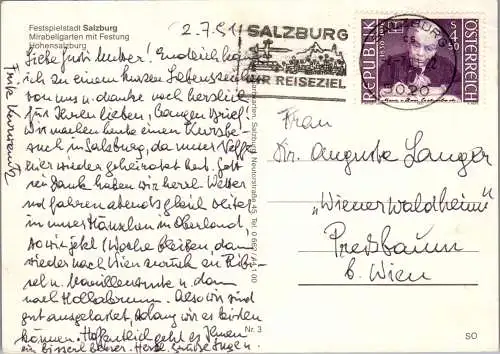 Festspielstadt Salzburg
Mirabellgarten mit Festung
Hohensalzburg
2.7.91
SALZBURG
IHR REISEZIEL
SALZBURG
5020
REPUBLIK
ÖSTERREICH
S 4.50
Liebe Gusti Mutter! Endlich
ich zu einem kurzen Lebenszeichen
von uns u. danke noch herzlich
für Ihren lieben, langen Brief!
Wir machen heute einen Kurzbe-
such in Salzburg, da unser Neffe
hier wieder geheiratet hat. Gott
sei Dank haben wir herrl. Wetter
und fahren abends gleich weiter
in unser Häuschen in Oberland,
so wie jetzt 1 Woche bleiben dann
wieder nach Wien zurück zu Ribi-
sel u. Marillenernte u. dann
nach Hollabrunn. Also wir sind
gut ausgelastet, solang wir es
können. Hoffentlich geht es Ihnen
ein bisserl besser. Herzl. Grüße
Frau
Dr. Auguste Langer
"Wienerwaldheim"
Preßbaum
b. Wien
Salzburg, Neutorstraße 45, Tel. 0 66 2 /
Nr. 3
SO